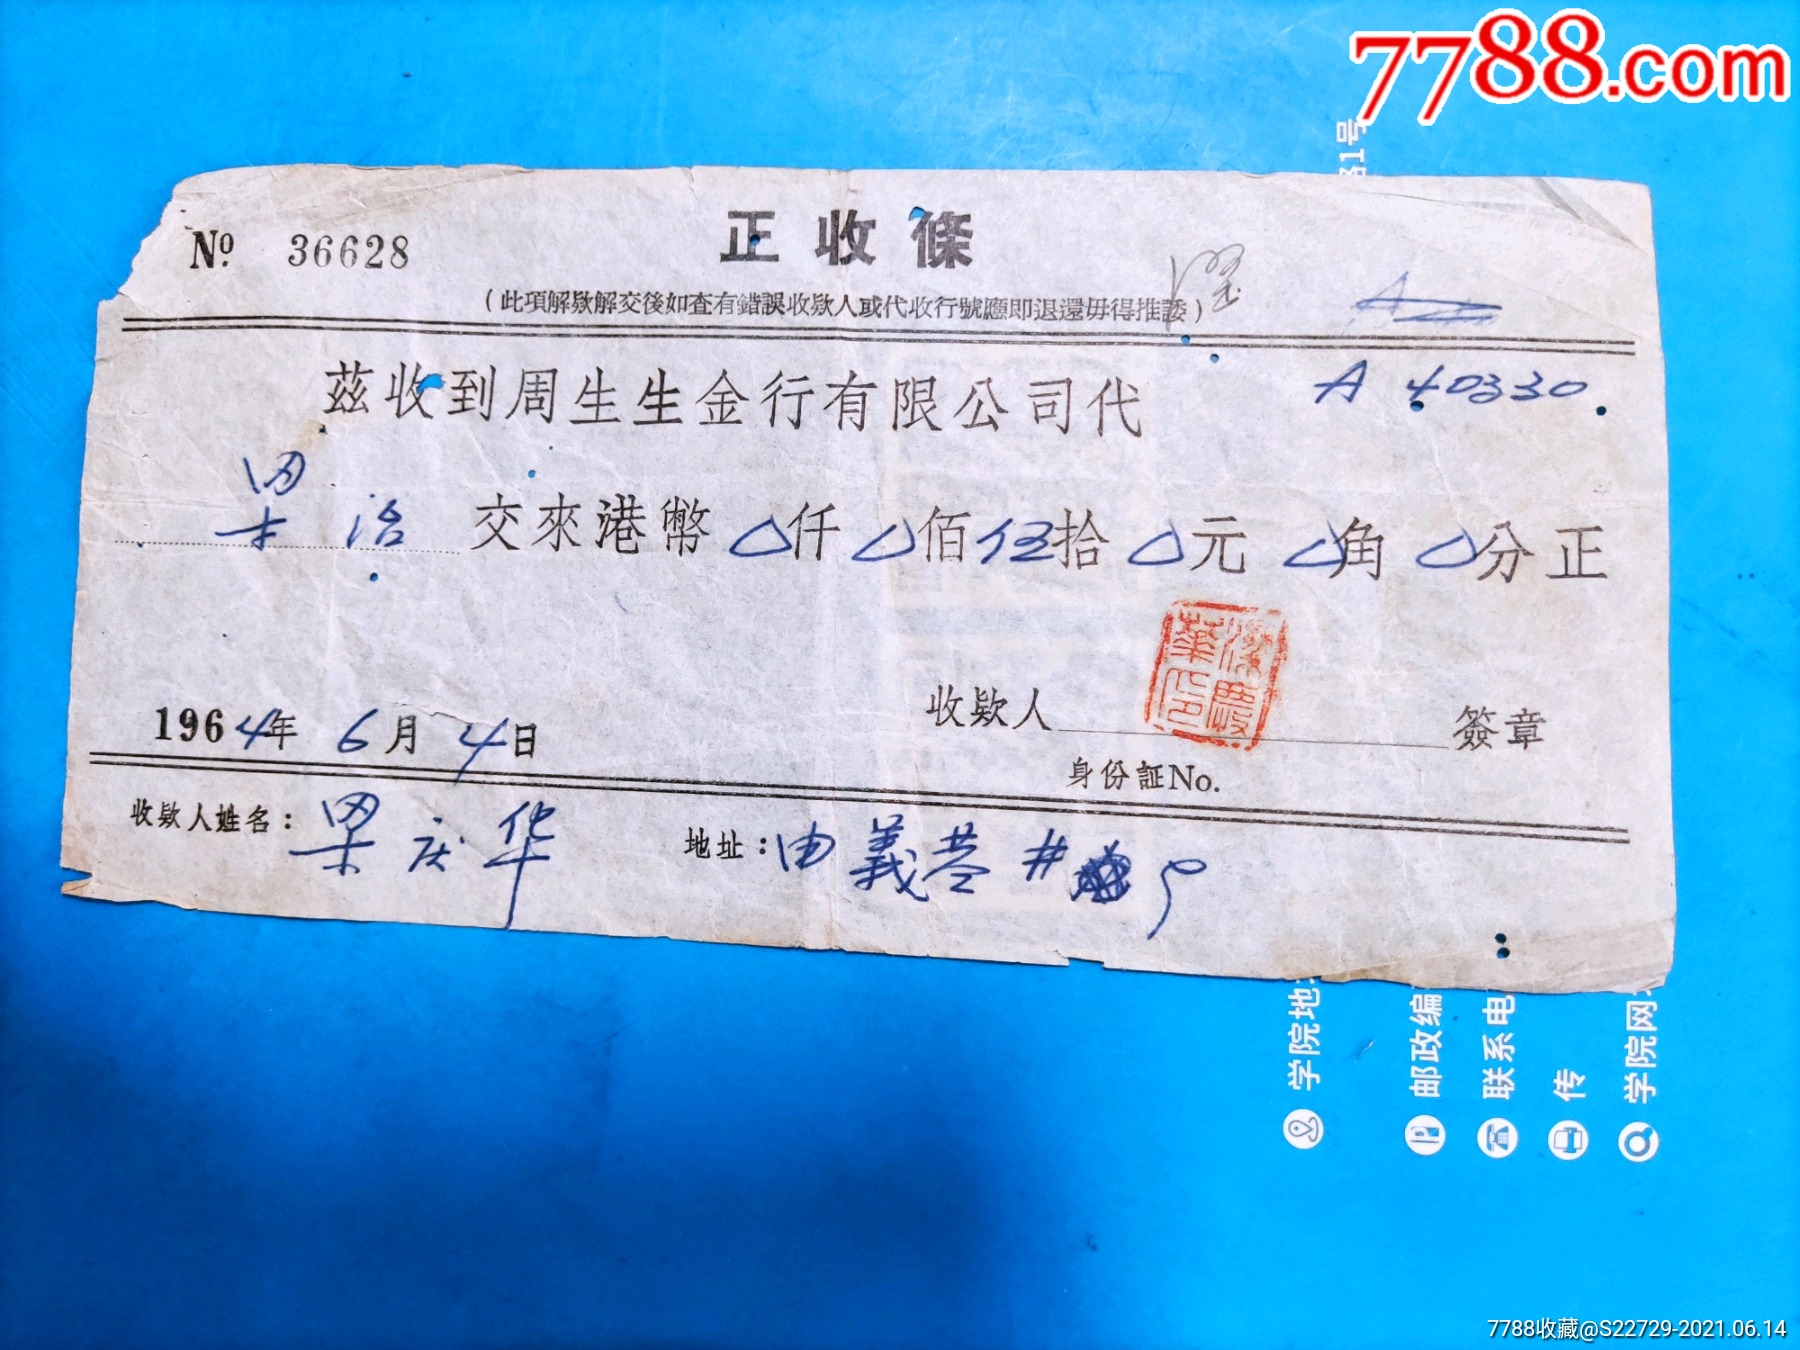 7788.com
路1号
正收條
No 36628
(此項解欵解交後如查有錯誤收欵人或代收行號應即退還毋得推諉)
A
茲收到周生生金行有限公司代
A 40330
治 交來港幣 0仟 0佰 伍拾 0元 0角 0分正
1964年 6月 4日
收欵人 簽章
身份証No.
收欵人姓名: 庆华
地址: 由義 #
学院地
邮政编
联系电
传
学院网
7788收藏@S22729-2021.06.14